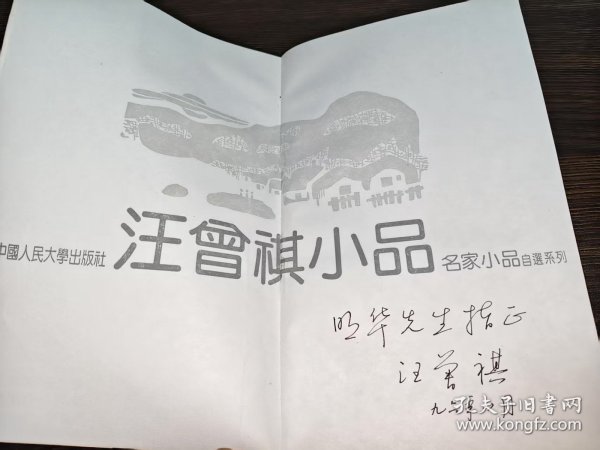 中國人民大學出版社 汪曾祺小品 名家小品自選系列
明华先生指正
汪曾祺
孔夫子旧书网
www.kongfz.com